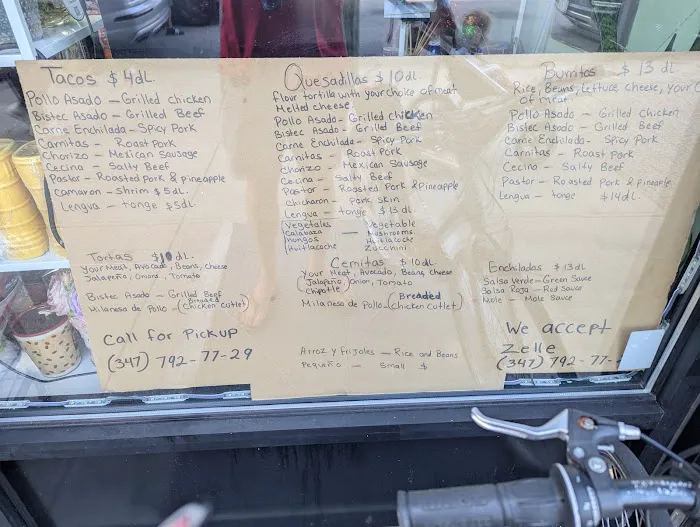 Tacos $4dL.
Pollo Asado - Grilled chicken
Bistec Asado - Grilled Beef
Carne Enchilada - Spicy Pork
Carnitas - Roast Pork
Chorizo - Mexican Sausage
Cecina - Salty Beef
Pastor - Roasted Pork & Pineapple
Camaron - Shrim $5dL.
Lengua - tonge $5dL.
Tortas $10 dL.
Your Meat, Avocado, Beans, Cheese
Jalapeño, Onions, Tomato
Bistec Asado - Grilled Beef
Milanesa de Pollo - (Breaded
Chicken Cutlet)
Call for Pickup
(347) 792-77-29
Quesadillas $10dL.
flour tortilla with your choice of meat
Melted cheese
Pollo Asado - Grilled chicken
Bistec Asado - Grilled Beef
Carne Enchilada - Spicy Pork
Carnitas - Roast Pork
Chorizo - Mexican Sausage
Cecina - Salty Beef
Pastor - Roasted Pork & Pineapple
Chicharon - Pork Skin
Lengua - tonge $13dL.
Vegetales - Vegetable
Calabaza
Hongos - Mushrooms
Huitlacoche Huitlacoche
Zocchini
Cemitas $10dL.
Your Meat, Avocado, Beans, Cheese
(Jalapeño, Onion, Tomato
Chipotle)
Milanesa de Pollo - (Breaded
Chicken Cutlet)
Arroz y frijoles - Rice and Beans
Pequeño - Small $
Burritos $13 dL
Rice, Beans, Lettuce, Cheese, Your C
of meat.
Pollo Asado - Grilled Chicken
Bistec Asado - Grilled Beef
Carne Enchilada - Spicy Pork
Carnitas - Roast Pork
Cecina - Salty Beef
Pastor - Roasted Pork & Pineapple
Lengua - tonge $14dL.
Enchiladas $13dL
Salsa Verde - Green Sauce
Salsa Roja - Red Sauce
Mole - Mole Sauce
We accept
Zelle
(347) 792-77-